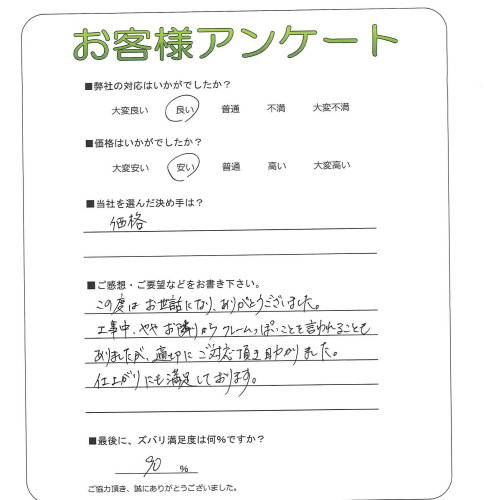 お客様アンケート
■弊社の対応はいかがでしたか？
大変良い　良い　普通　不満　大変不満
■価格はいかがでしたか？
大変安い　安い　普通　高い　大変高い
■当社を選んだ決め手は？
価格
■ご感想・ご要望などをお書き下さい。
この度は お世話になり、ありがとうございました。
工事中、やや お隣りから クレームっぽいことを言われることも
ありましたが、適切に ご対応頂き 助かりました。
仕上がりにも満足しております。
■最後に、ズバリ満足度は何％ですか？
90 ％
ご協力頂き、誠にありがとうございました。